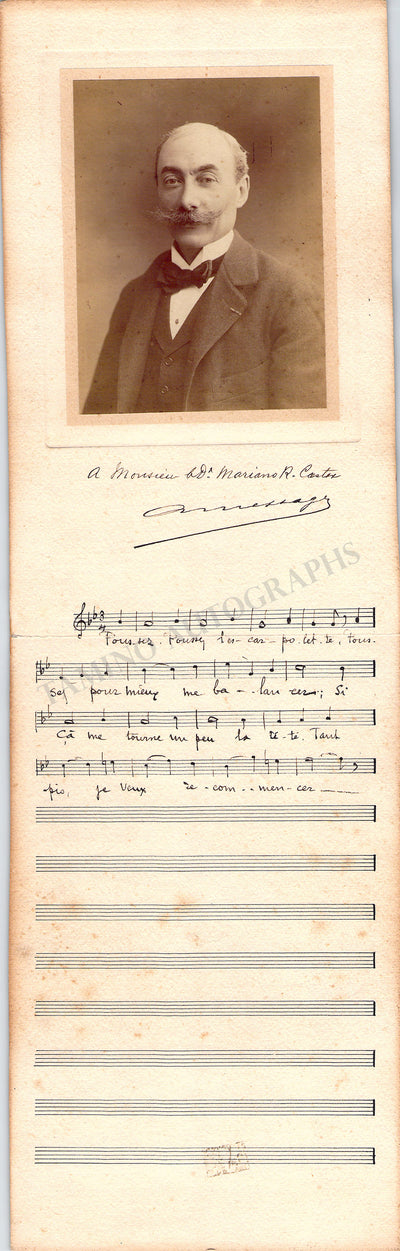 A Monsieur Mariano R. Castex
A Messager
TAMINO AUTOGRAPHS
Poussez, Poussez l'es-car-po-let-te, Pous-
sez pour mieux me ba--lan cer; Si
Cà me tourne un peu la tê-te. Tant
pis, je veux re-com--men-cer